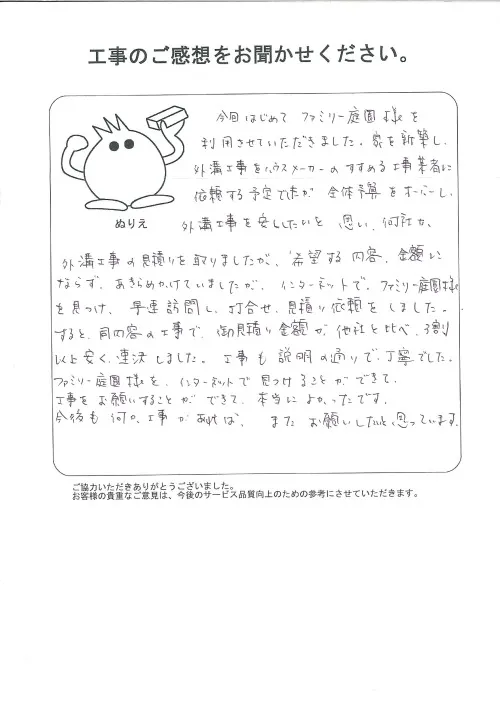 工事のご感想をお聞かせください。
今回はじめて ファミリー庭園様を
利用させていただきました。家を新築し、
外溝工事をハウスメーカーのすすめる工事業者に
依頼する予定でしたが 全体予算をオーバーし、
ぬりえ
外溝工事を安くしたいと 思い、何社か、
外溝工事の見積りを取りましたが、希望する内容、金額に
ならず、あきらめかけていましたが、インターネットで、ファミリー庭園様
を見つけ、早速訪問し、打合せ、見積り依頼をしました。
すると、同内容の工事で、御見積り金額が他社と比べ、3割
以上安く、速決しました。工事も説明の通りで、丁寧でした。
ファミリー庭園様を、インターネットで見つけることができて、
工事をお願いすることができて、本当によかったです。
今後も何か、工事があれば、またお願いしたいと思っています。
ご協力いただきありがとうございました。
お客様の貴重なご意見は、今後のサービス品質向上のための参考にさせていただきます。